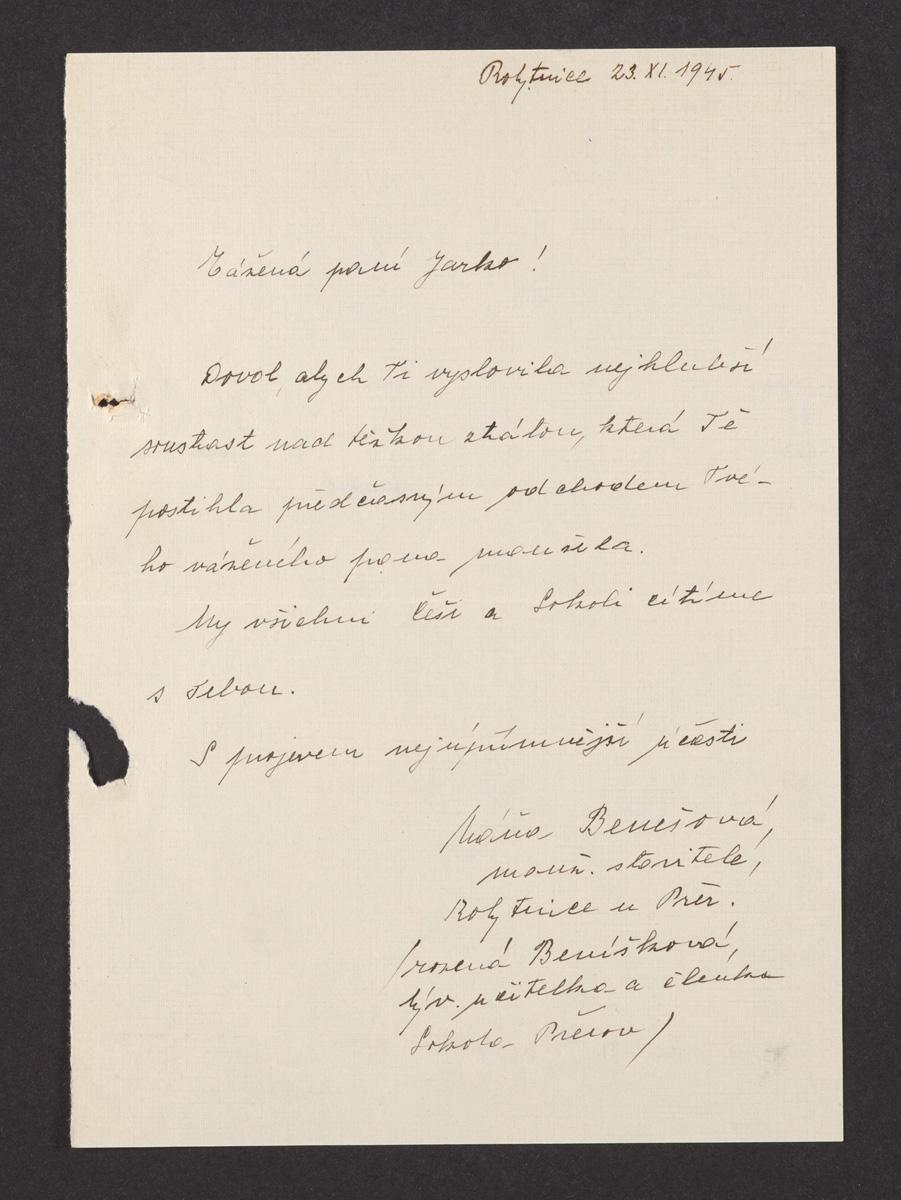 Rokytnice 23. XI. 1945.
Vážená paní Jarko!
Dovol, abych Ti vyslovila nejhlubší
soustrast nad těžkou ztrátou, která Tě
postihla předčasným odchodem Tvé-
ho váženého pana manžela.
My všichni Češi a Sokoli cítíme
s Tebou.
S projevem nejupřímnější účasti
Máňa Benešová,
manž. stavitele,
Rokytnice u Přer.
(rozená Beníšková,
býv. učitelka a členka
Sokola Přerov)